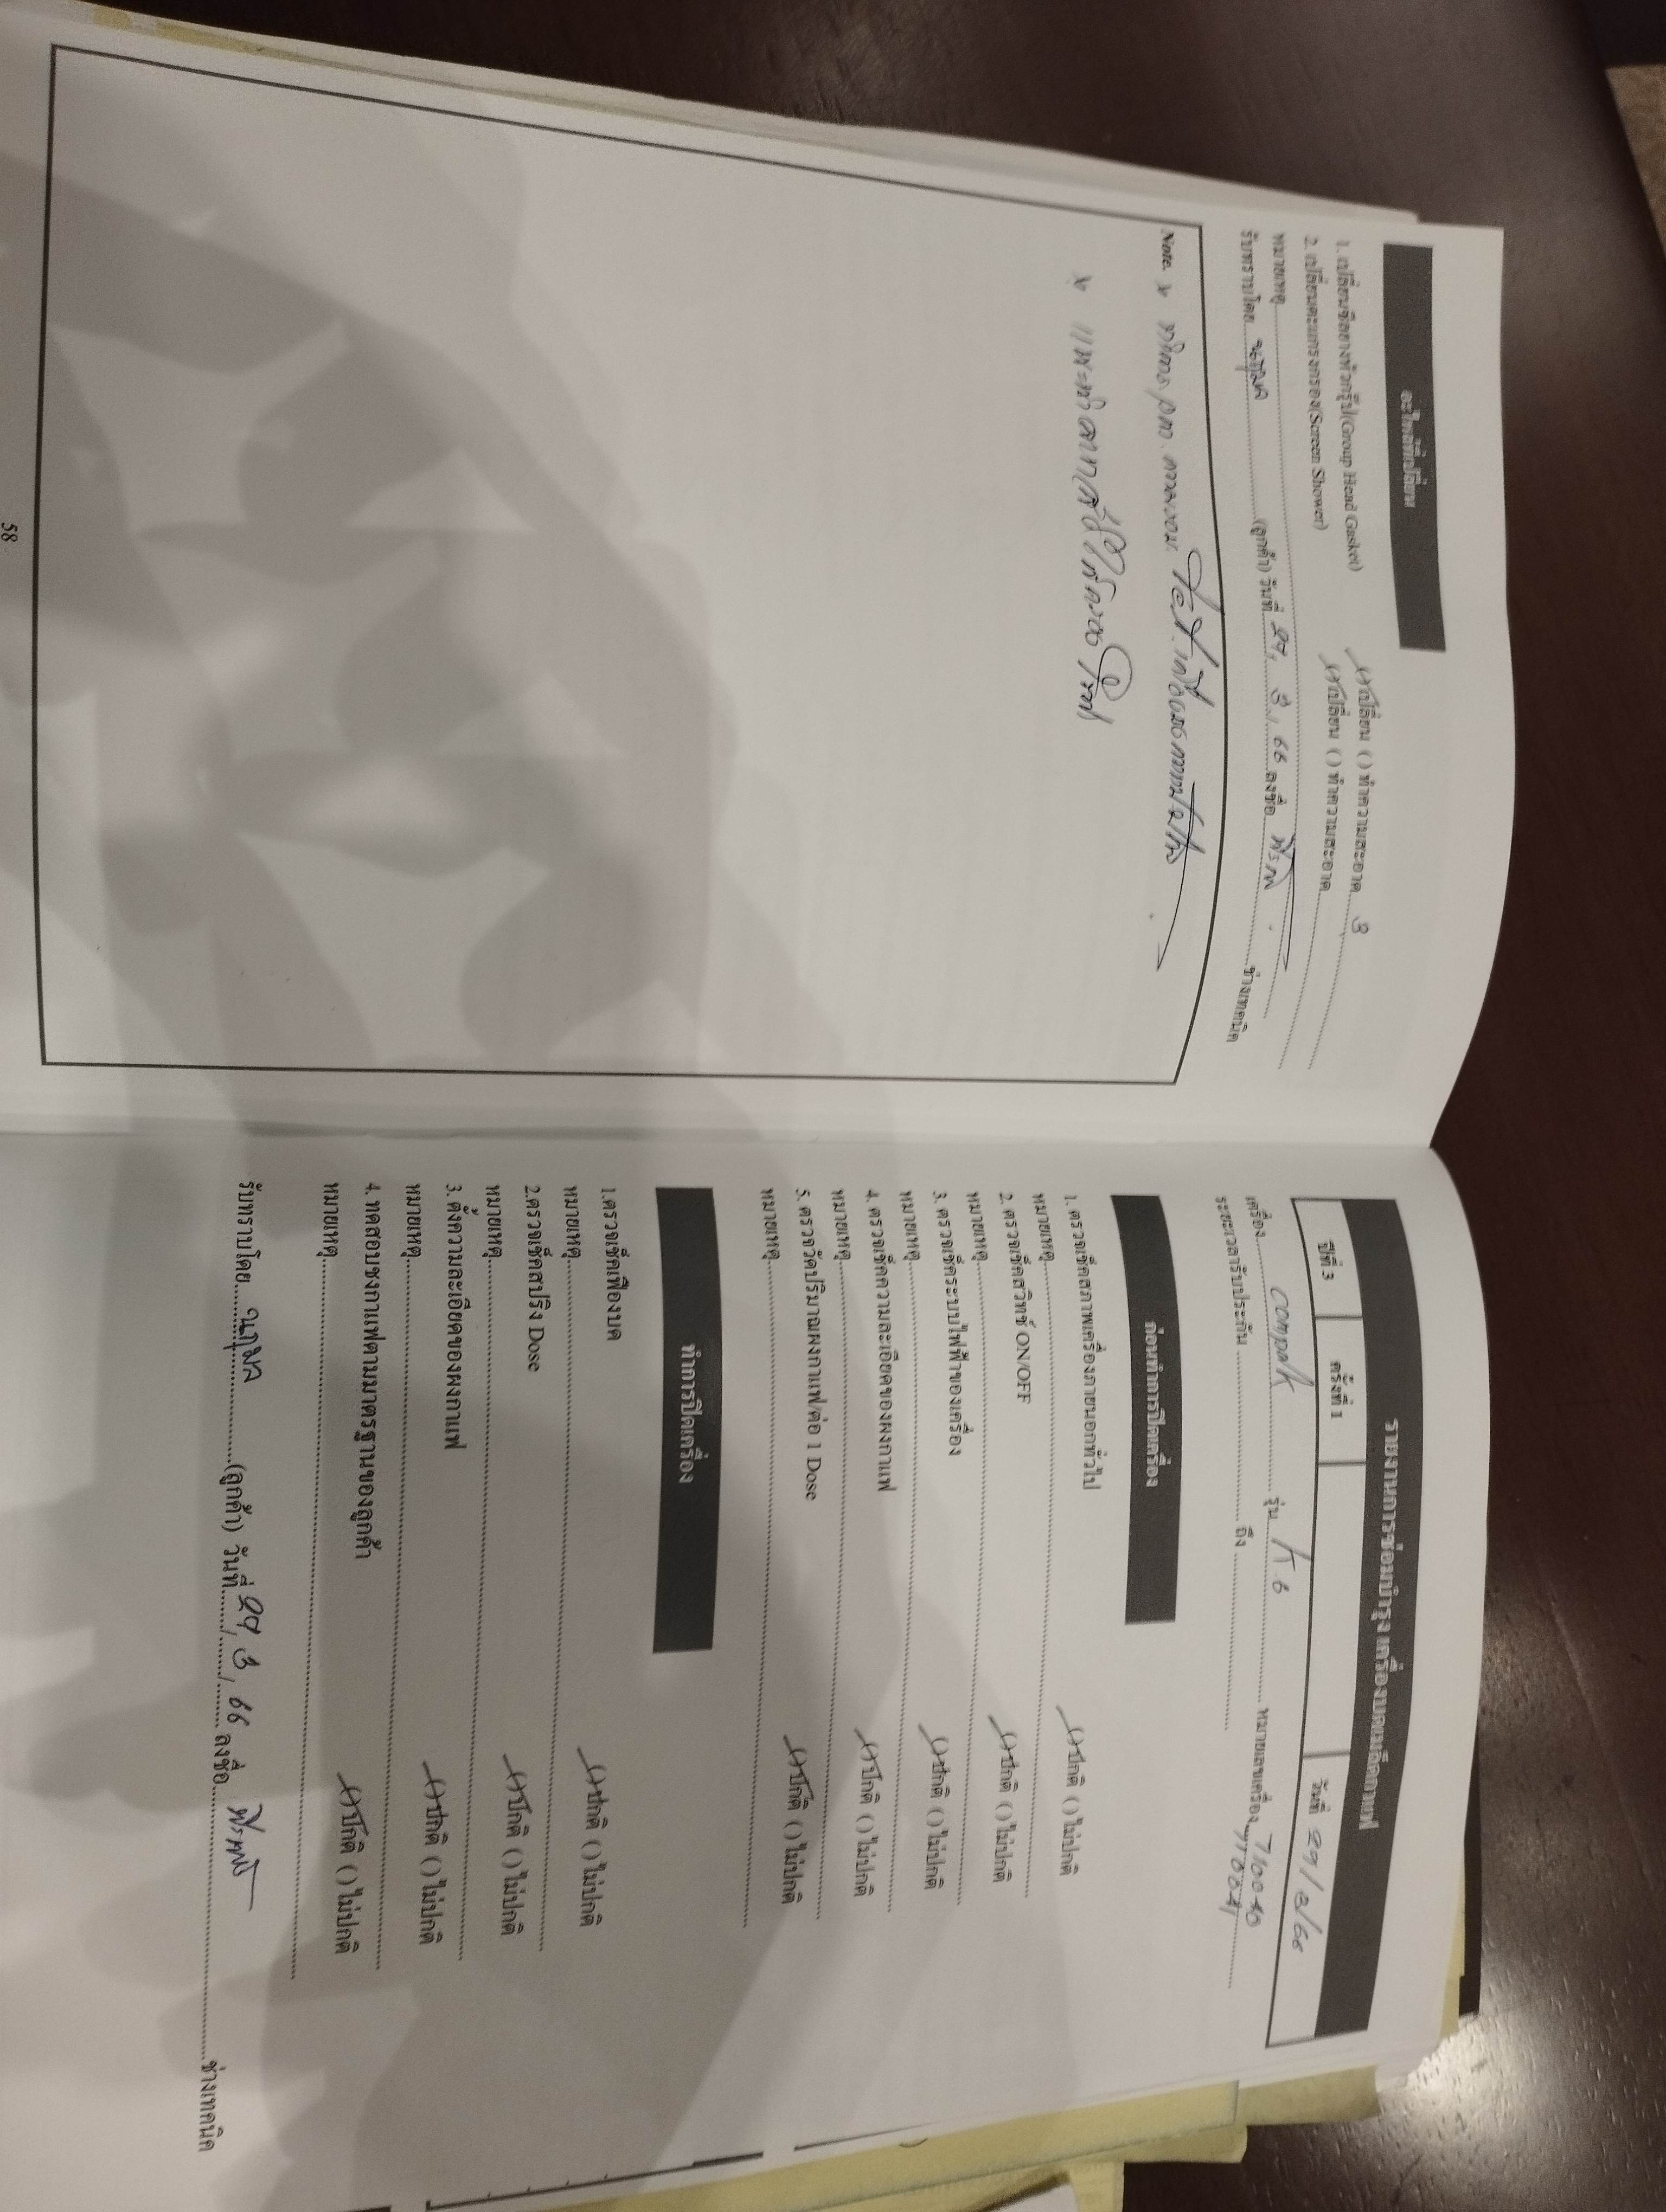 อะไหล่ที่เปลี่ยน
1. เปลี่ยนซีลยางหัวกรุ๊ป(Group Head Gasket) เปลี่ยน ( ) ทำความสะอาด
2. เปลี่ยนตะแกรงกรอง(Screen Shower) เปลี่ยน ( ) ทำความสะอาด
หมายเหตุ
รับทราบโดย (ลูกค้า) วันที่ 29, 3, 66 ลงชื่อ ช่างเทคนิค
Note.
58
รายงานการซ่อมบำรุง เครื่องบดเมล็ดกาแฟ
ปีที่ 3 ครั้งที่ 1 วันที่ 29/3/66
เครื่อง compak รุ่น K6 หมายเลขเครื่อง
ระยะเวลารับประกัน ถึง
ก่อนทำการปิดเครื่อง
1. ตรวจเช็คสภาพเครื่องภายนอกทั่วไป ปกติ ( ) ไม่ปกติ
หมายเหตุ
2. ตรวจเช็คสวิทช์ ON/OFF ปกติ ( ) ไม่ปกติ
หมายเหตุ
3. ตรวจเช็คระบบไฟฟ้าของเครื่อง ปกติ ( ) ไม่ปกติ
หมายเหตุ
4. ตรวจเช็คความละเอียดของผงกาแฟ ปกติ ( ) ไม่ปกติ
หมายเหตุ
5. ตรวจวัดปริมาณผงกาแฟ/ต่อ 1 Dose ปกติ ( ) ไม่ปกติ
หมายเหตุ
ทำการปิดเครื่อง
1.ตรวจเช็คเฟืองบด ปกติ ( ) ไม่ปกติ
หมายเหตุ
2.ตรวจเช็คสปริง Dose ปกติ ( ) ไม่ปกติ
หมายเหตุ
3. ตั้งความละเอียดของผงกาแฟ ปกติ ( ) ไม่ปกติ
หมายเหตุ
4. ทดสอบชงกาแฟตามมาตรฐานของลูกค้า ปกติ ( ) ไม่ปกติ
หมายเหตุ
รับทราบโดย (ลูกค้า) วันที่ 29, 3, 66 ลงชื่อ ช่างเทคนิค